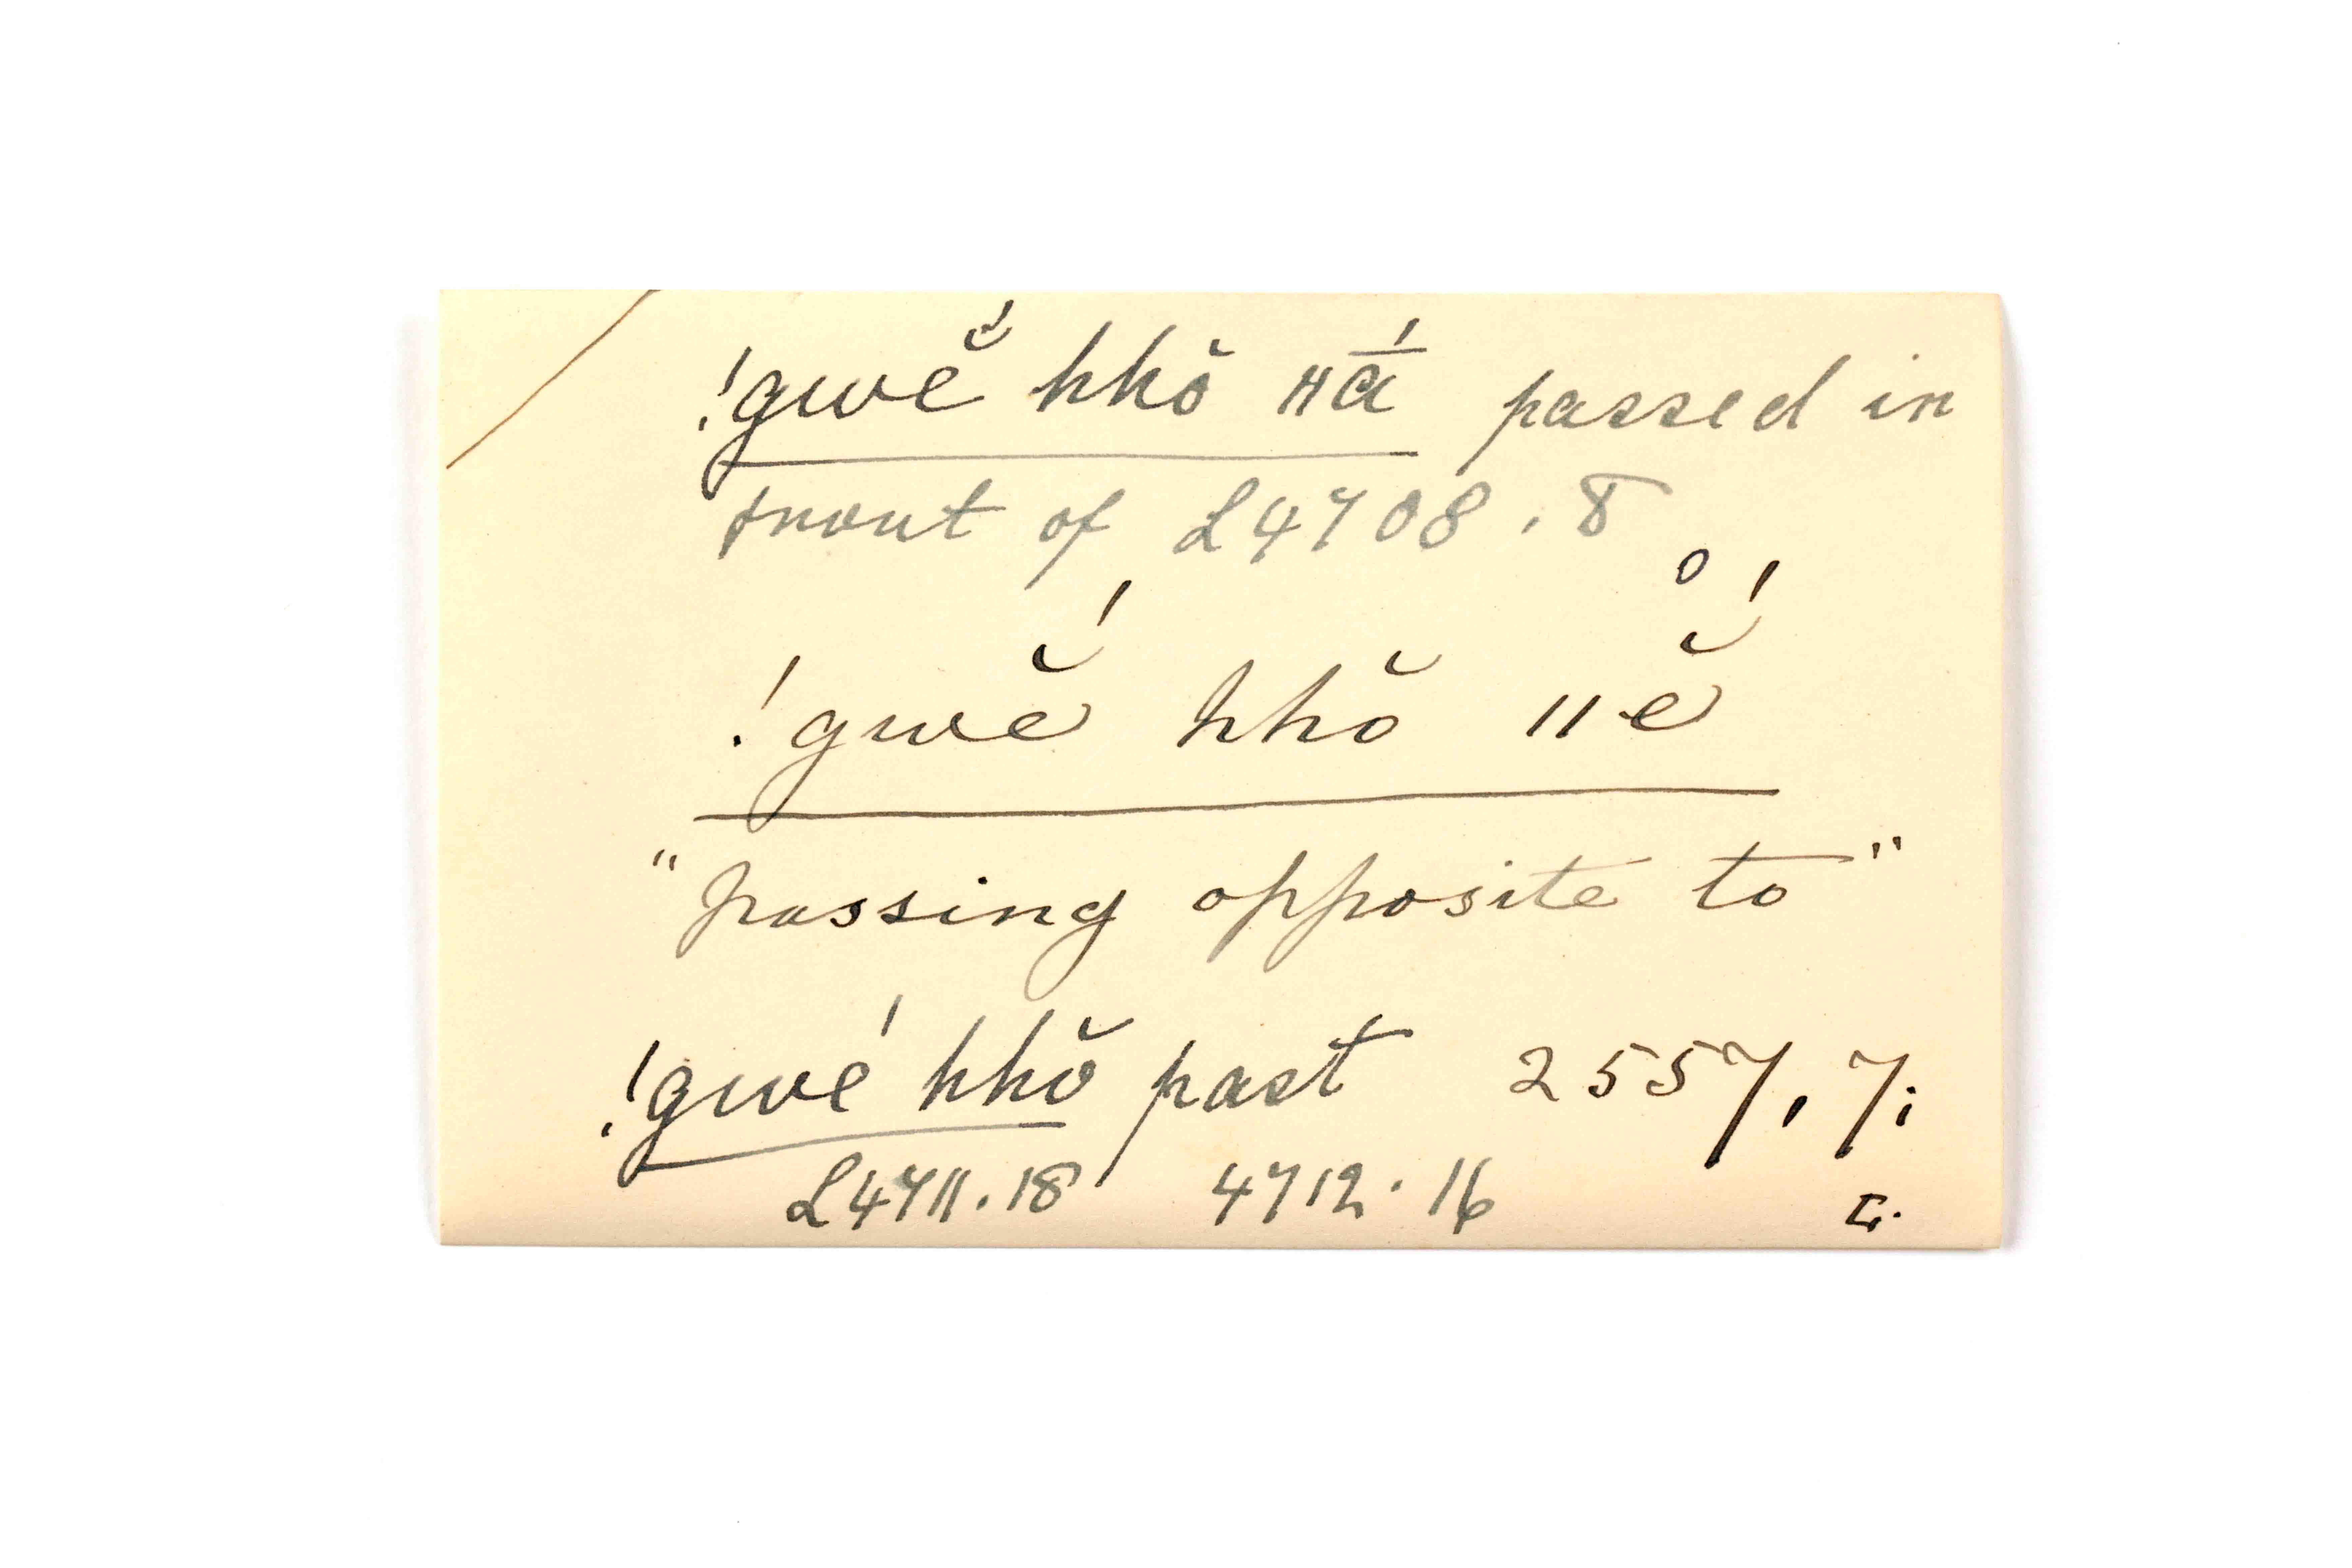 !gwĕ́ hhŏ ǁā́ passed in
front of L4708.8
!gwĕ́ hhŏ ǁĕ̊́
"passing opposite to"
!gwé hhŏ past 2557, 7;
L4711.18 4712.16